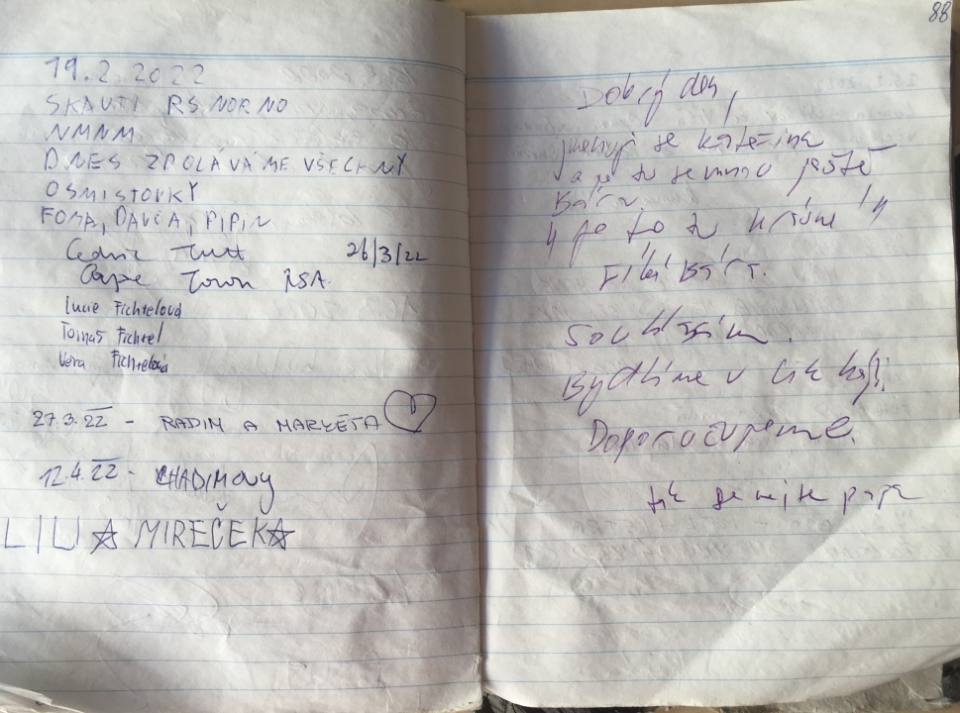 19.2.2022
SKAUTI RS NORNO
NMNM
DNES ZPOLÁVÁME VŠECHNY
OSMISTOVKY
FOMA, DAVČA, PIPIN
Cedric 26/3/22
Cape Town RSA
Lucie Fichtelová
Tomáš Fichtel
Věra Fichtelová
27.3.22 - RADIM A MARKÉTA
12.4.22 - CHADIMOVY
MIREČEK
88
Dobrý den,
jmenuji se Kateřina
a je tu se mnou ještě
Bára.
je to tu krásné
Souhlasím.
Bydlíme v
Doporučujeme.
tak se mějte papa